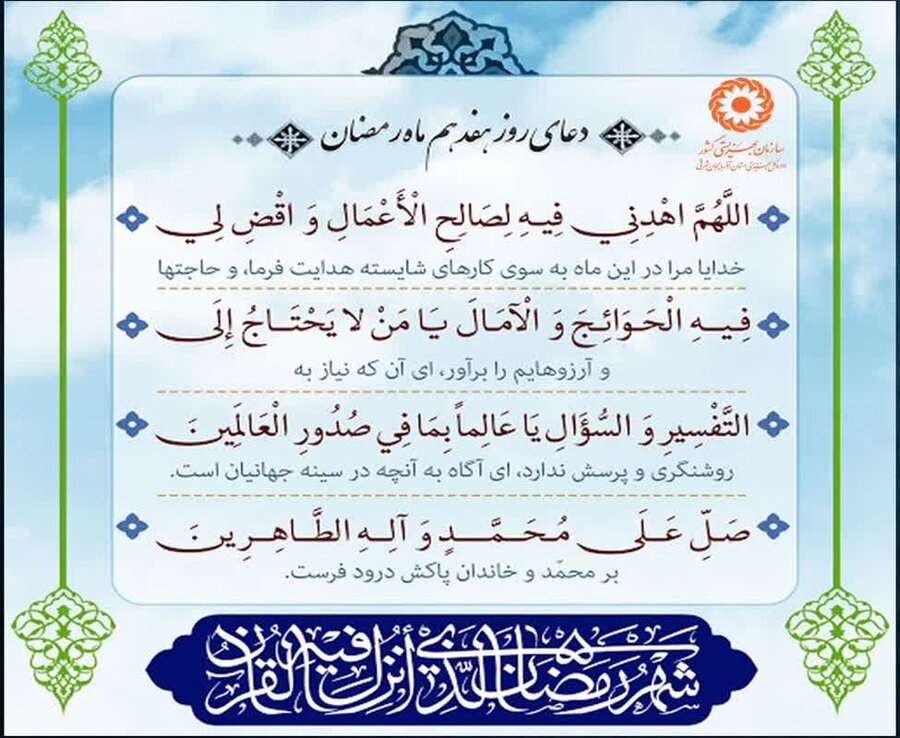 دعای روز هفدهم ماه رمضان
سازمان بهزیستی کشور
اداره کل بهزیستی استان آذربایجان شرقی
اللَّهُمَّ اهْدِنِي فِيهِ لِصَالِحِ الْأَعْمَالِ وَ اقْضِ لِي
خدایا مرا در این ماه به سوی کارهای شایسته هدایت فرما، و حاجتها
فِيهِ الْحَوَائِجَ وَ الْآمَالَ يَا مَنْ لا يَحْتَاجُ إِلَى
و آرزوهایم را برآور، ای آن که نیاز به
التَّفْسِيرِ وَ السُّؤَالِ يَا عَالِماً بِمَا فِي صُدُورِ الْعَالَمِينَ
روشنگری و پرسش ندارد، ای آگاه به آنچه در سینه جهانیان است.
صَلِّ عَلَى مُحَمَّدٍ وَ آلِهِ الطَّاهِرِينَ
بر محمّد و خاندان پاکش درود فرست.
شهر رمضان الذی أنزل فیه القرآن